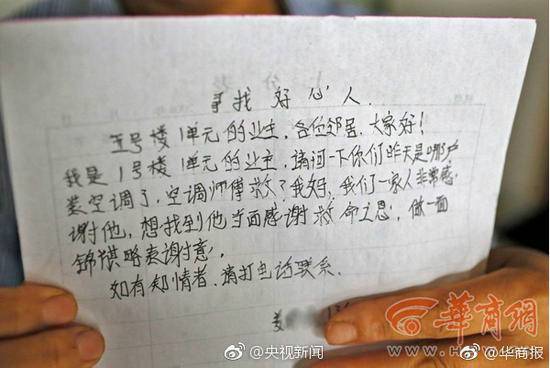 寻找好心人.
五号楼1单元的业主,各位邻居,大家好!
我是1号楼1单元的业主,请问一下你们昨天是哪户
装空调了,空调师傅救了我妈,我们一家人非常感
谢他,想找到他当面感谢救命之恩,做一面
锦旗略表谢意,
如有知情者,请打电话联系.
姜
华商网
@央视新闻
@华商报